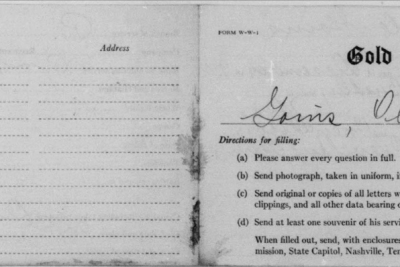 Address
FORM W-W-1
Gold
Goins,
Directions for filling:
(a) Please answer every question in full.
(b) Send photograph, taken in uniform, i
(c) Send original or copies of all letters w
clippings, and all other data bearing
(d) Send at least one souvenir of his servi
When filled out, send, with enclosures
mission, State Capitol, Nashville, Ten